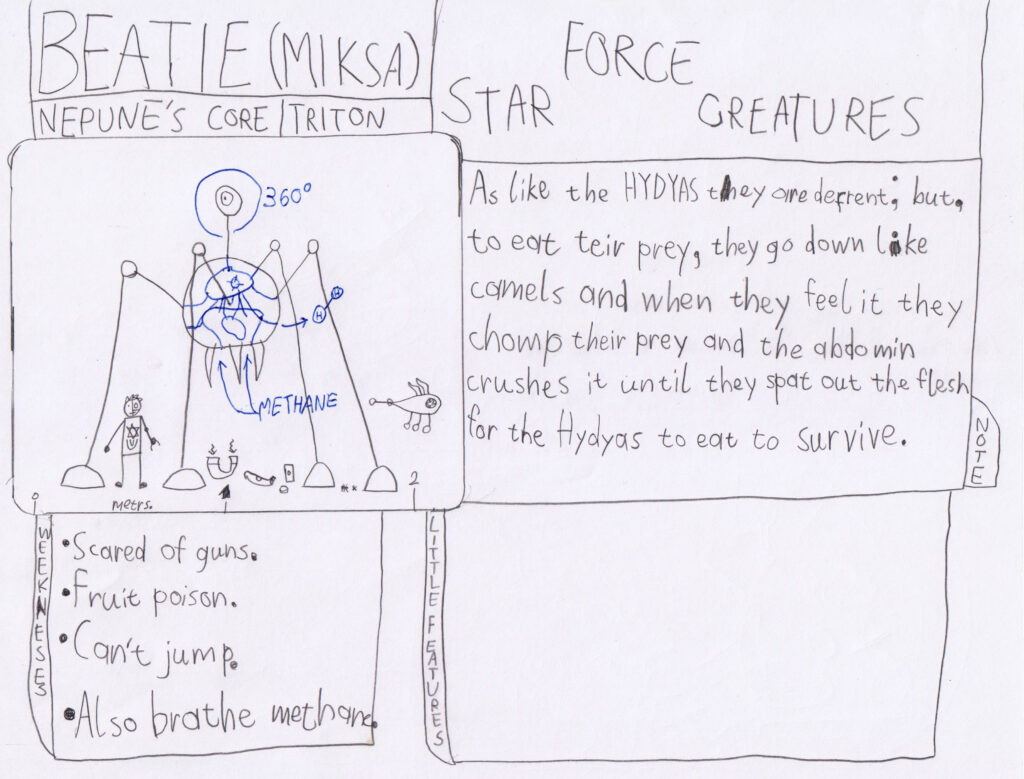 BEATIE (MIKSA)
NEPUNE'S CORE/TRITON
FORCE
STAR CREATURES
360°
H H
METHANE
0 1 2
metrs.
As like the HYDYAS they are defrent; but,
to eat teir prey, they go down like
camels and when they feel it they
chomp their prey and the abdomin
crushes it until they spat out the flesh
for the Hydyas to eat to survive.
NOTE
WEEKNESES
• Scared of guns.
• Fruit poison.
• Can't jump.
• Also brathe methane.
LITTLE FEATURES